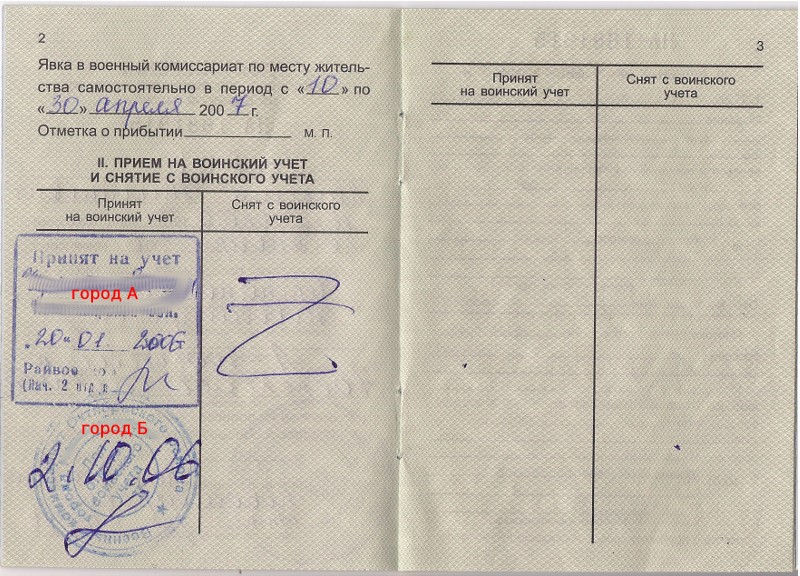 2
Явка в военный комиссариат по месту житель-
ства самостоятельно в период с «10» по
«30» апреля 2007 г.
Отметка о прибытии м. п.
II. ПРИЕМ НА ВОИНСКИЙ УЧЕТ
И СНЯТИЕ С ВОИНСКОГО УЧЕТА
Принят
на воинский учет
Снят с воинского
учета
Принят на учет
город А
"20" 01 2006 г
Райвоен
(Нач. 2 отд
город Б
2.10.06
3
Принят
на воинский учет
Снят с воинского
учета